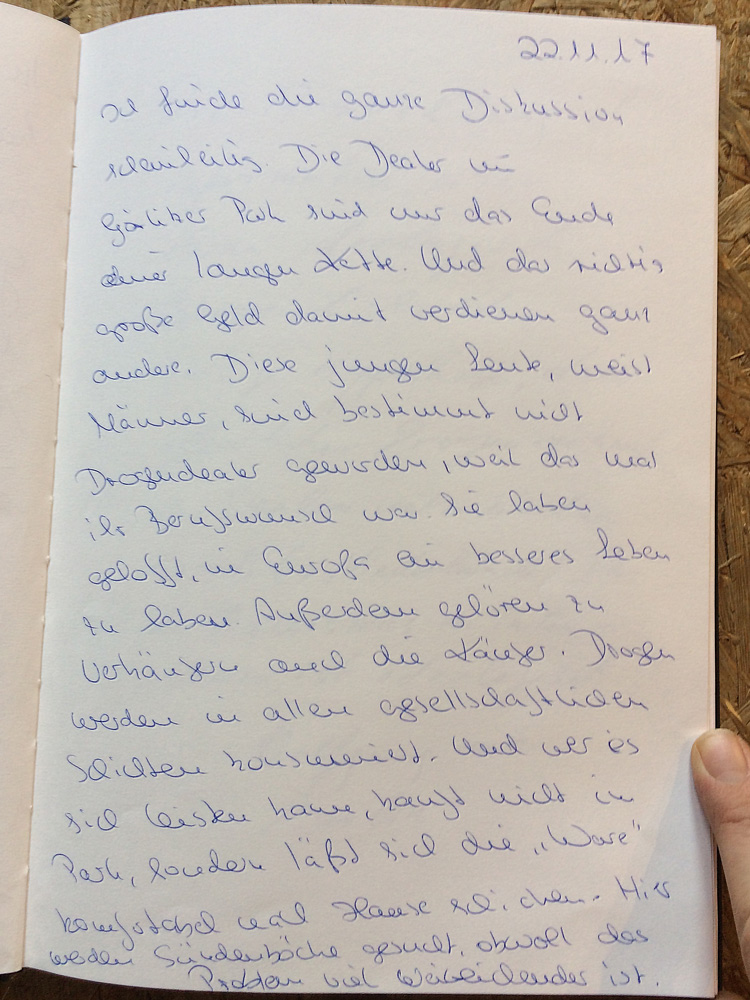 22.11.17
Ich finde die ganze Diskussion
scheinheilig. Die Dealer im
Görlitzer Park sind nur das Ende
einer langen Kette. Und das richtig
große Geld damit verdienen ganz
andere. Diese jungen Leute, meist
Männer, sind bestimmt nicht
Drogendealer geworden, weil das mal
ihr Berufswunsch war. Sie haben
gehofft, in Europa ein besseres Leben
zu haben. Außerdem gehören zu
Verkäufern auch die Käufer. Drogen
werden in allen gesellschaftlichen
Schichten konsumiert. Und wer es
sich leisten kann, kauft nicht im
Park, sondern läßt sich die „Ware"
komfortabel nach Hause schicken. Hier
werden Sündenböcke gesucht, obwohl das
Problem viel weitreichender ist.